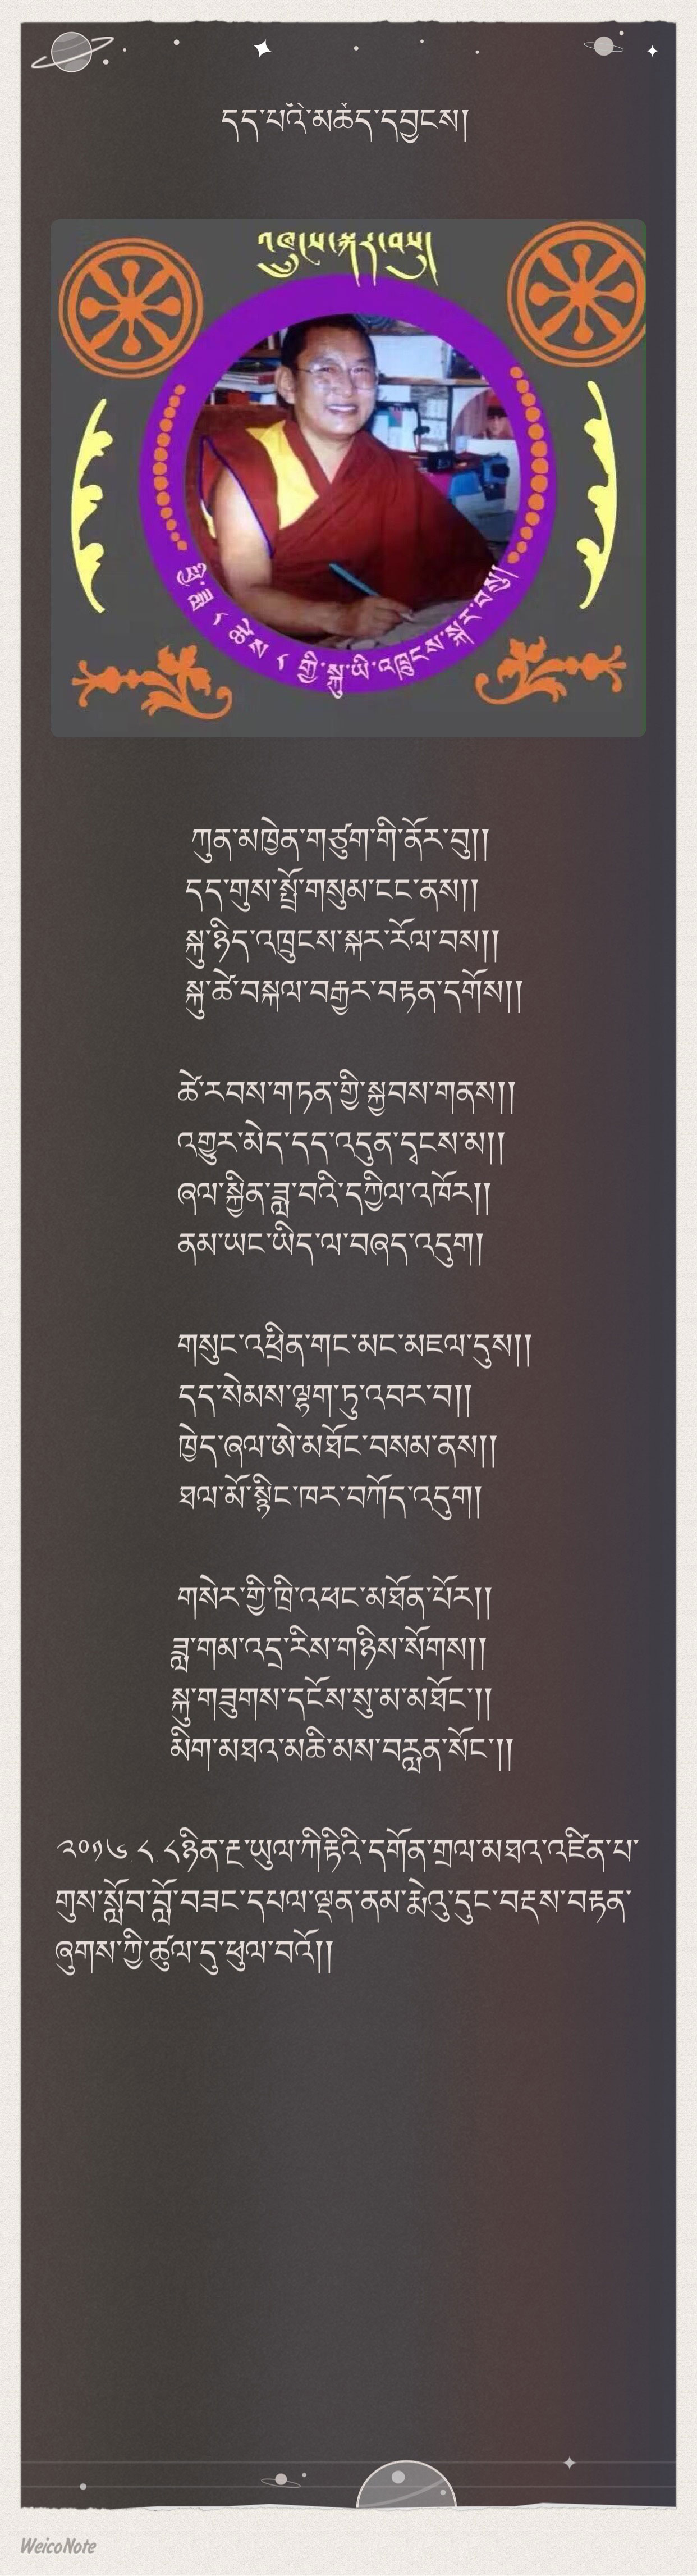 དད་པའི་མཆོད་དབྱངས།
འཁྲུངས་སྐར་བསུ།
ཀུན་མཁྱེན་གཙུག་གི་ནོར་བུ།།
དད་གུས་སྤྲོ་གསུམ་ངང་ནས།།
སྐུ་ཉིད་འཁྲུངས་སྐར་རོལ་བས།།
སྐུ་ཚེ་བསྐལ་བརྒྱར་བརྟན་དགོས།།
ཚེ་རབས་གཏན་གྱི་སྐྱབས་གནས།།
འགྱུར་མེད་དད་འདུན་དྭངས་མ།།
ཞལ་སྐྱིན་ཟླ་བའི་དཀྱིལ་འཁོར།།
ནམ་ཡང་ཡིད་ལ་བཞད་འདུག།
གསུང་འཕྲིན་གང་མང་མཇལ་དུས།།
དད་སེམས་ལྷག་ཏུ་འབར་བ།།
ཁྱེད་ཞལ་ཨེ་མཐོང་བསམ་ནས།།
ཐལ་མོ་སྙིང་ཁར་བཀོད་འདུག།
གསེར་གྱི་ཁྲི་འཕང་མཐོན་པོར།།
ཟླ་གམ་འདྲ་རིས་གཉིས་སོགས།།
སྐུ་གཟུགས་དངོས་སུ་མ་མཐོང་།།
མིག་མཐའ་མཆི་མས་བརླན་སོང་།།
༢༠༡༦ ༨ ༨ཉིན་རྔ་ཡུལ་ཀིརྟིའི་དགོན་གྲལ་མཐའ་འཛིན་པ་
གུས་སློབ་བློ་བཟང་དཔལ་ལྡན་ནམ་རྨེའུ་དུང་བརྡས་བརྟན་
ཞུགས་ཀྱི་ཚུལ་དུ་ཕུལ་བའོ།།
WeicoNote